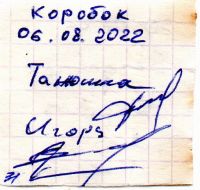 Коробок
06.08.2022
Танюшка
Игорь
31